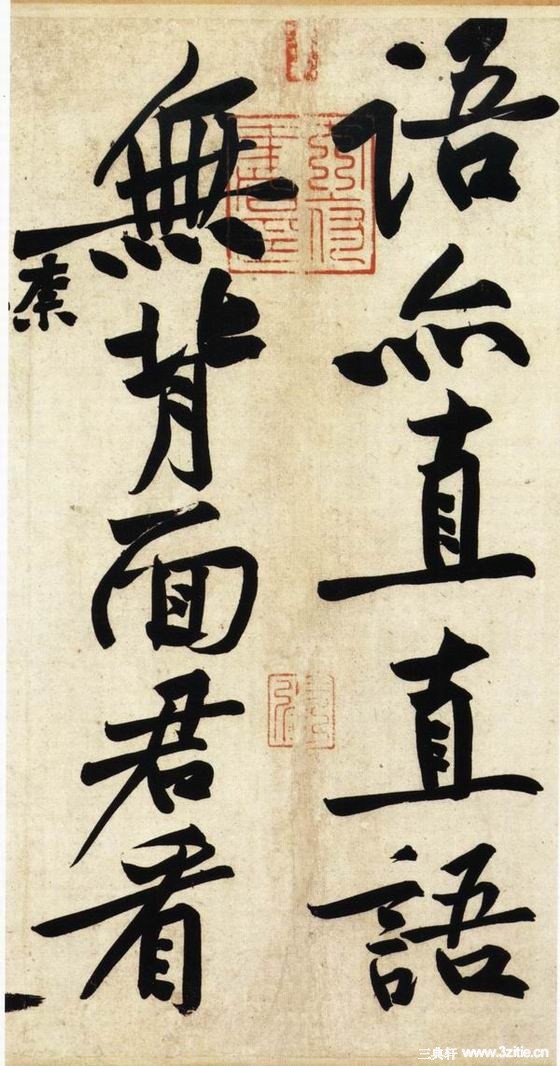 语亦直直語
無背面君看
三典轩 www.3zitie.cn